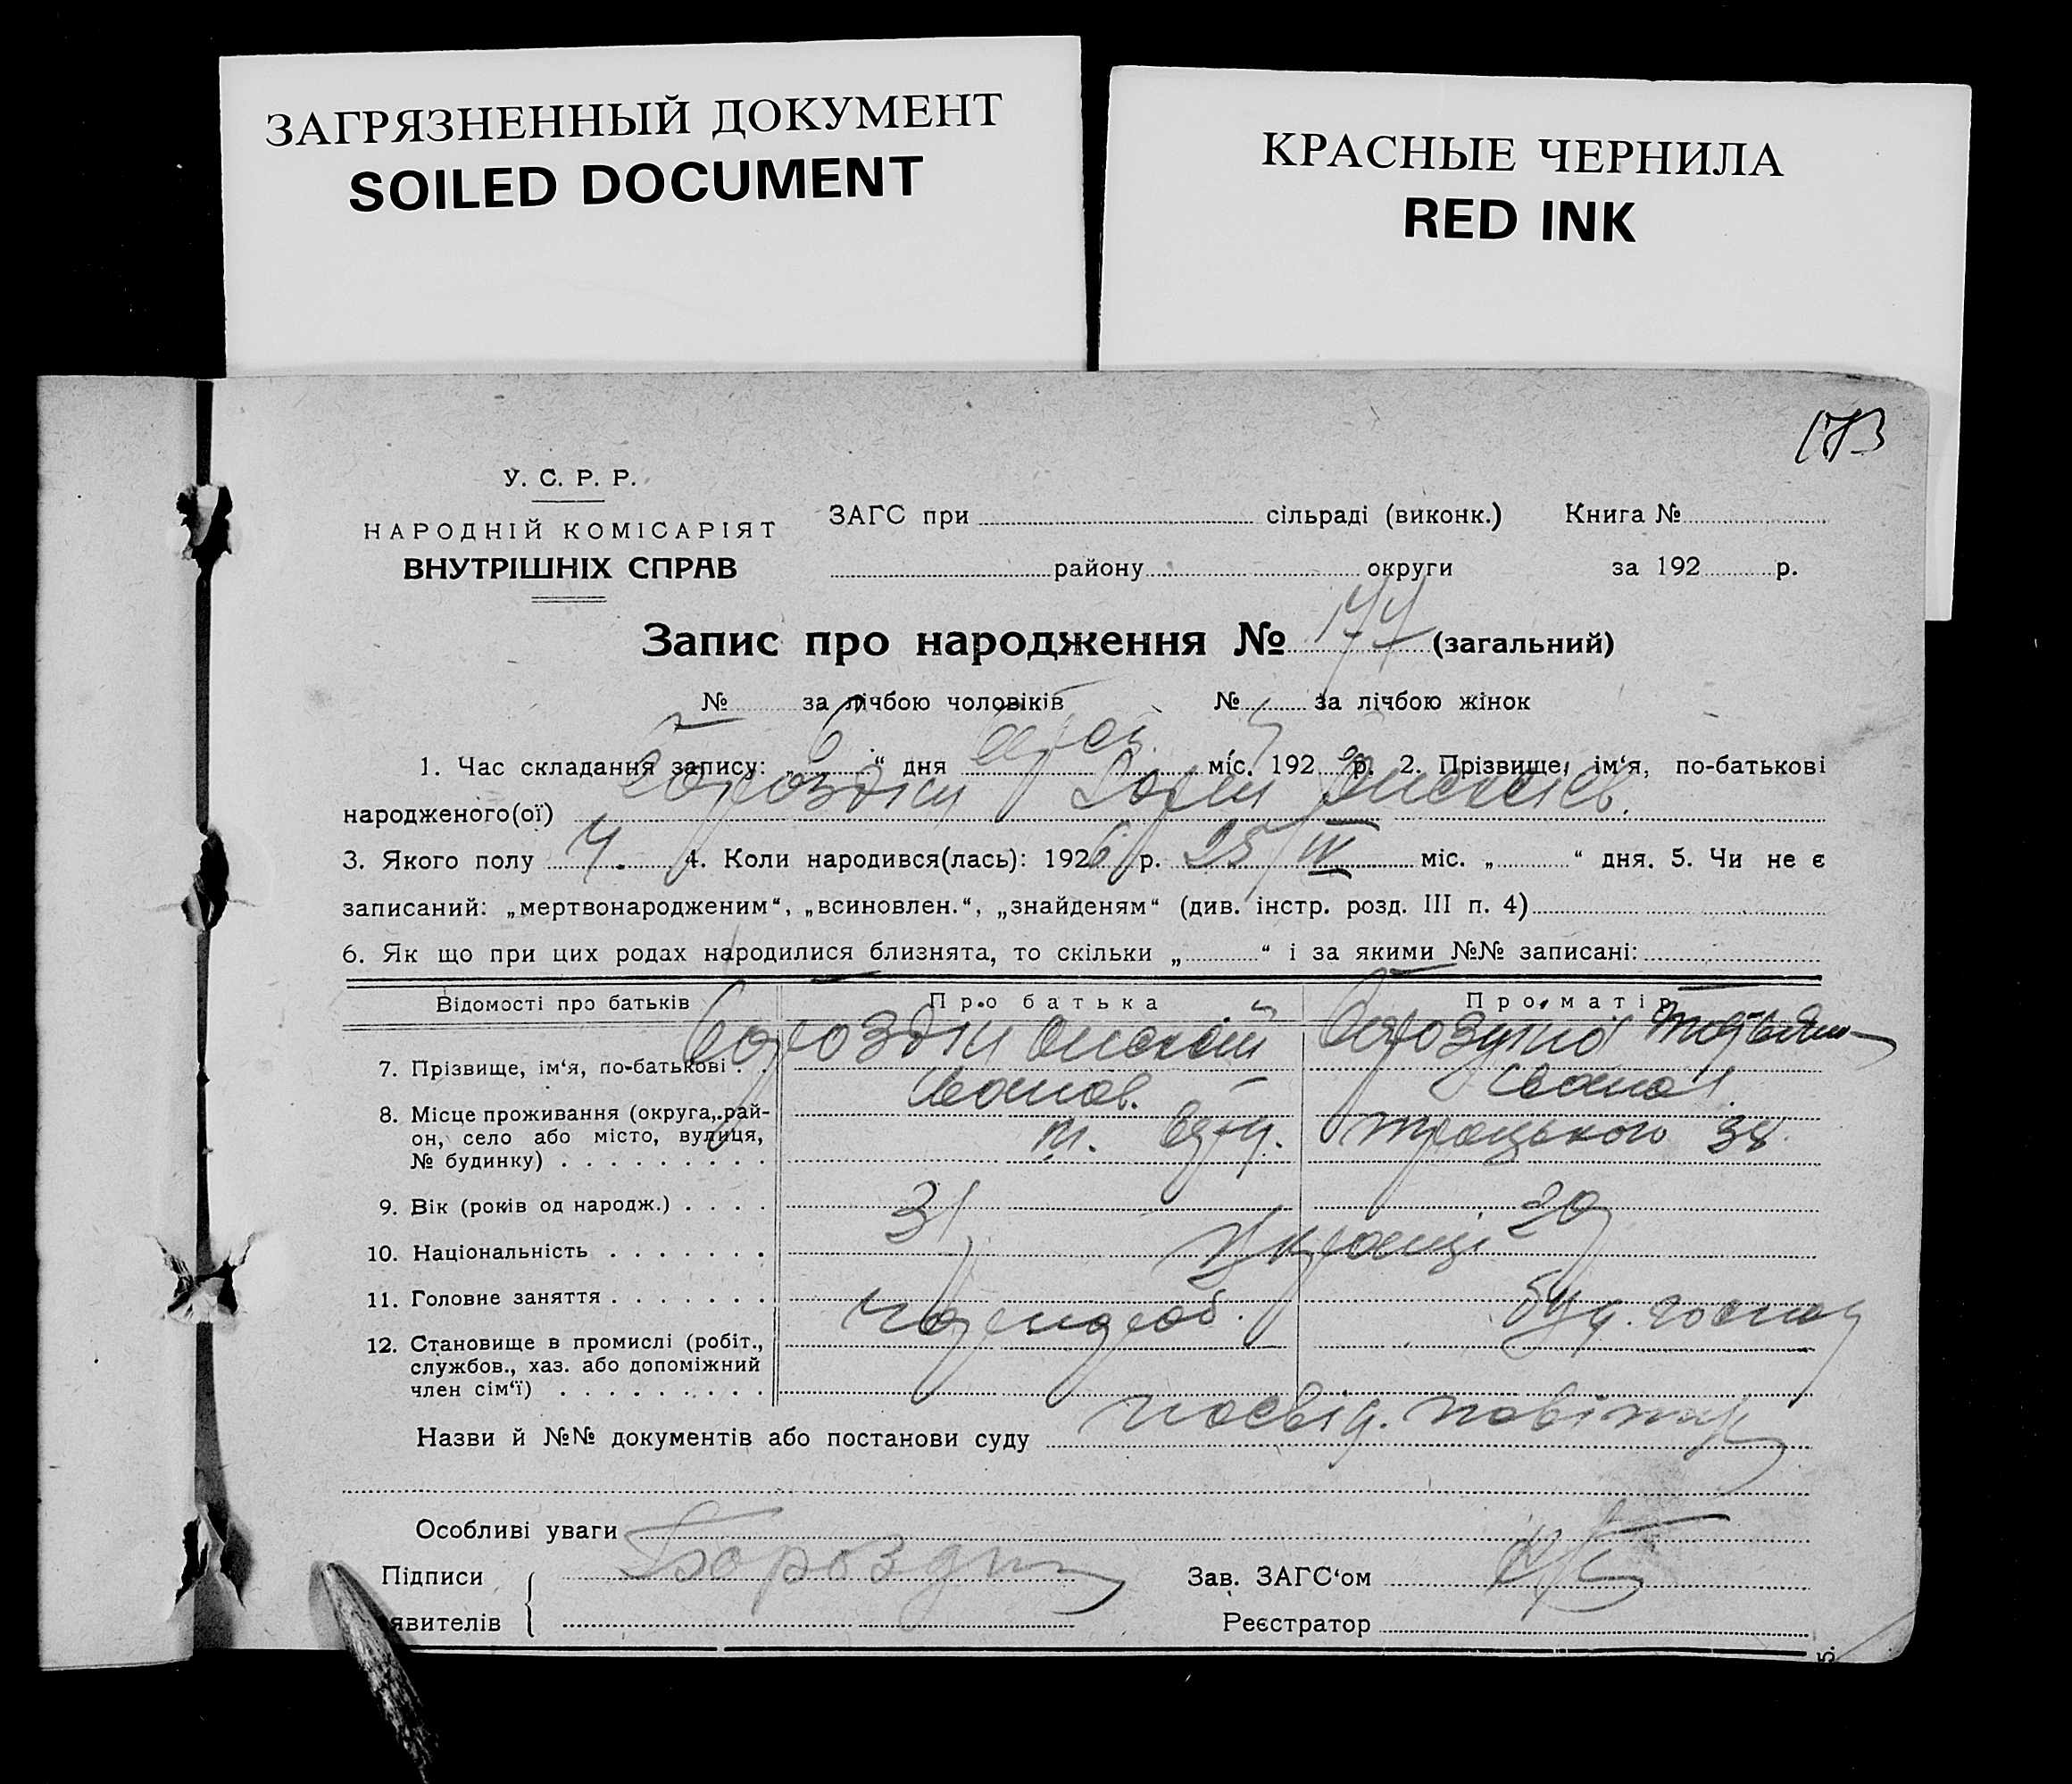 ЗАГРЯЗНЕННЫЙ ДОКУМЕНТ
SOILED DOCUMENT
КРАСНЫЕ ЧЕРНИЛА
RED INK
173
У. С. Р. Р.
НАРОДНІЙ КОМІСАРІЯТ
ВНУТРІШНІХ СПРАВ
ЗАГС при сільраді (виконк.) Книга №
району округи за 192 р.
Запис про народження № 177 (загальний)
№ за лічбою чоловіків № за лічбою жінок
1. Час складання запису: „ 6 “ дня міс. 192 р. 2. Прізвище, ім‘я, по-батькові
народженого(ої) Бороздин
3. Якого полу Ч. 4. Коли народився(лась): 1926 р. 25/IV міс. „ “ дня. 5. Чи не є
записаний: „мертвонародженим“, „всиновлен.“, „знайденям“ (див. інстр. розд. III п. 4)
6. Як що при цих родах народилися близнята, то скільки „ “ і за якими №№ записані:
Відомості про батьків Про батька Про матір
7. Прізвище, ім‘я, по-батькові . . Бороздин
Иванов. Иванов.
8. Місце проживання (округа, рай-
он, село або місто, вулиця, м. Троцького 38
№ будинку) . . . . . . . . .
9. Вік (років од народж.) . . . . 31 20
10. Національність . . . . . . . Українці
11. Головне заняття . . . . . . . чорнороб. буд. господ
12. Становище в промислі (робіт.,
службов., хаз. або допоміжний
член сім‘ї) . . . . . . . . .
Назви й №№ документів або постанови суду посвід. повітух
Особливі уваги
Підписи Бороздин Зав. ЗАГС‘ом
явителів Реєстратор